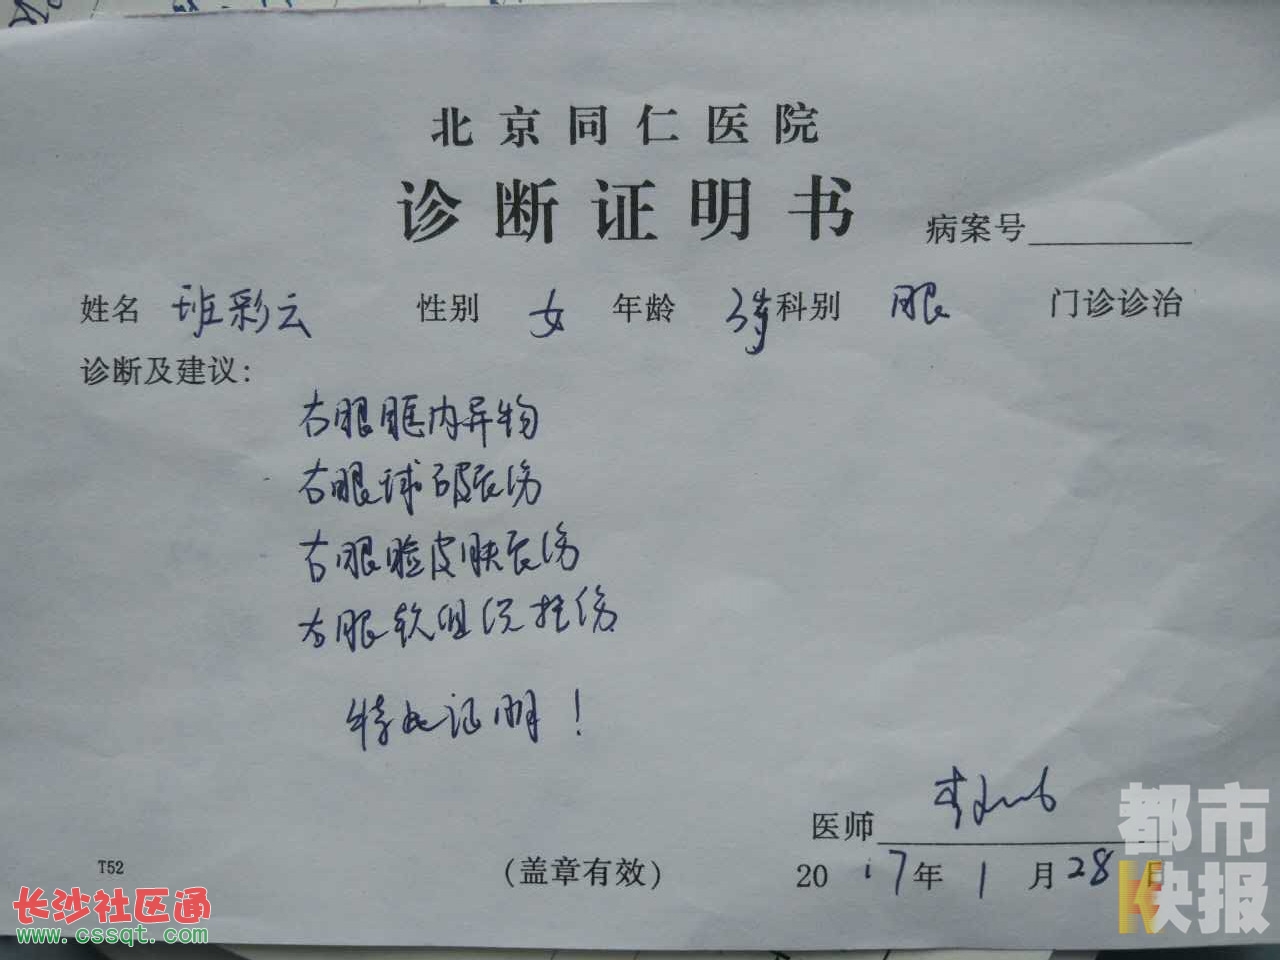 北京同仁医院
诊断证明书 病案号
姓名 班彩云 性别 女 年龄 3岁 科别 眼 门诊诊治
诊断及建议:
右眼眶内异物
右眼球破裂伤
右眼睑皮肤裂伤
右眼软组织挫伤
特此证明!
医师
T52 (盖章有效) 2017年1月28日
长沙社区通
www.cssqt.com
都市
快报